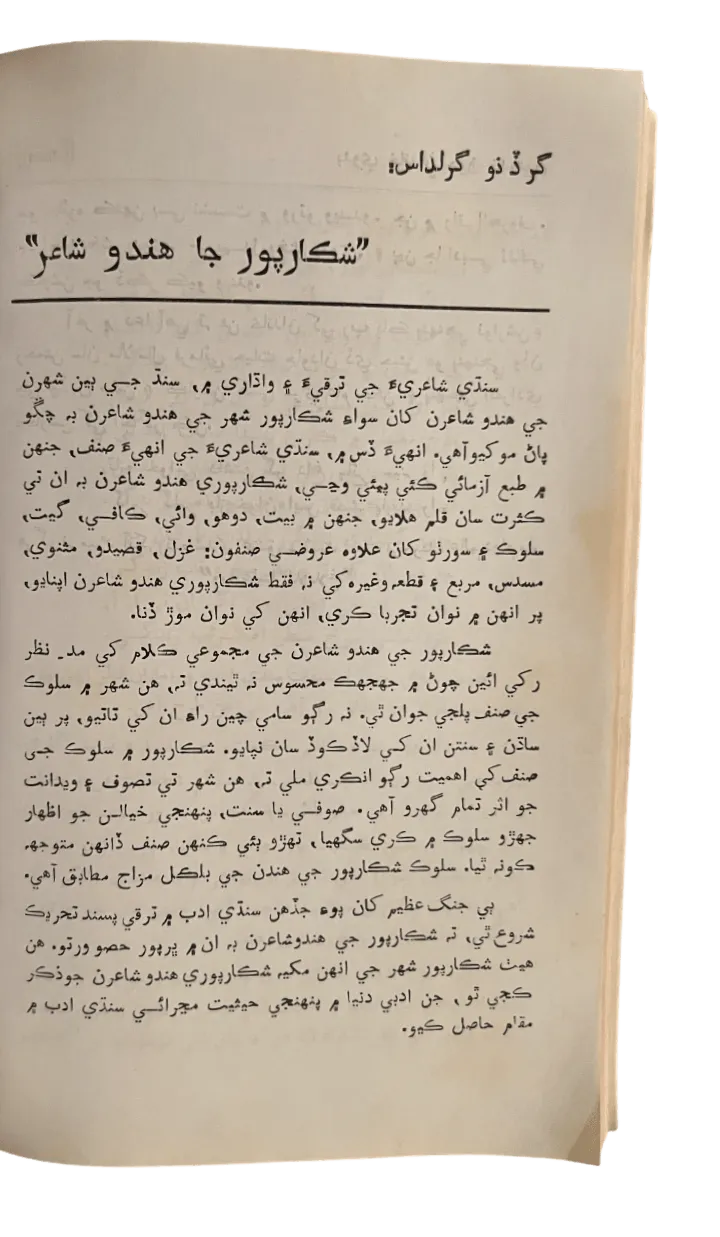 گرڏنو گرلداس:
”شڪارپور جا هندو شاعر“
سنڌي شاعريءَ جي ترقيءَ ۽ واڌاري ۾، سنڌ جي ٻين شهرن
جي هندو شاعرن کان سواءِ شڪارپور شهر جي هندو شاعرن بہ چڱو
پاڻ موکيوآهي. انهيءَ ڏس ۾، سنڌي شاعريءَ جي انهيءَ صنف، جنهن
۾ طبع آزمائي ڪئي پيئي وڃي، شڪارپوري هندو شاعرن بہ ان تي
ڪثرت سان قلم هلايو، جنهن ۾ بيت، دوهو، وائي، ڪافي، گيت،
سلوڪ ۽ سورٺو کان علاوه عروضي صنفون: غزل، قصيدو، مثنوي،
مسدس، مربع ۽ قطعہ وغيره کي نہ فقط شڪارپوري هندو شاعرن اپنايو،
پر انهن ۾ نوان تجربا ڪري، انهن کي نوان موڙ ڏنا.
شڪارپور جي هندو شاعرن جي مجموعي ڪلام کي مد۔ نظر
رکي ائين چوڻ ۾ جهجهڪ محسوس نہ ٿيندي تہ، هن شهر ۾ سلوڪ
جي صنف پلجي جوان ٿي. نہ رڳو سامي چين راءِ ان کي تاتيو، پر ٻين
ساڌن ۽ سنتن ان کي لاڏ ڪوڏ سان نپايو. شڪارپور ۾ سلوڪ جي
صنف کي اهميت رڳو انڪري ملي تہ، هن شهر تي تصوف ۽ ويدانت
جو اثر تمام گهرو آهي. صوفي يا سنت، پنهنجي خيالن جو اظهار
جهڙو سلوڪ ۾ ڪري سگهيا، تهڙو ٻئي ڪنهن صنف ڏانهن متوجہ
ڪونہ ٿيا. سلوڪ شڪارپور جي هندن جي بلڪل مزاج مطابق آهي.
ٻي جنگ عظيم کان پوءِ جڏهن سنڌي ادب ۾ ترقي پسند تحريڪ
شروع ٿي، تہ شڪارپور جي هندوشاعرن بہ ان ۾ ڀرپور حصو ورتو. هن
هيٺ شڪارپور شهر جي انهن مکيہ شڪارپوري هندو شاعرن جوذڪر
ڪجي ٿو، جن ادبي دنيا ۾ پنهنجي حيثيت مڃرائي سنڌي ادب ۾
مقام حاصل ڪيو.